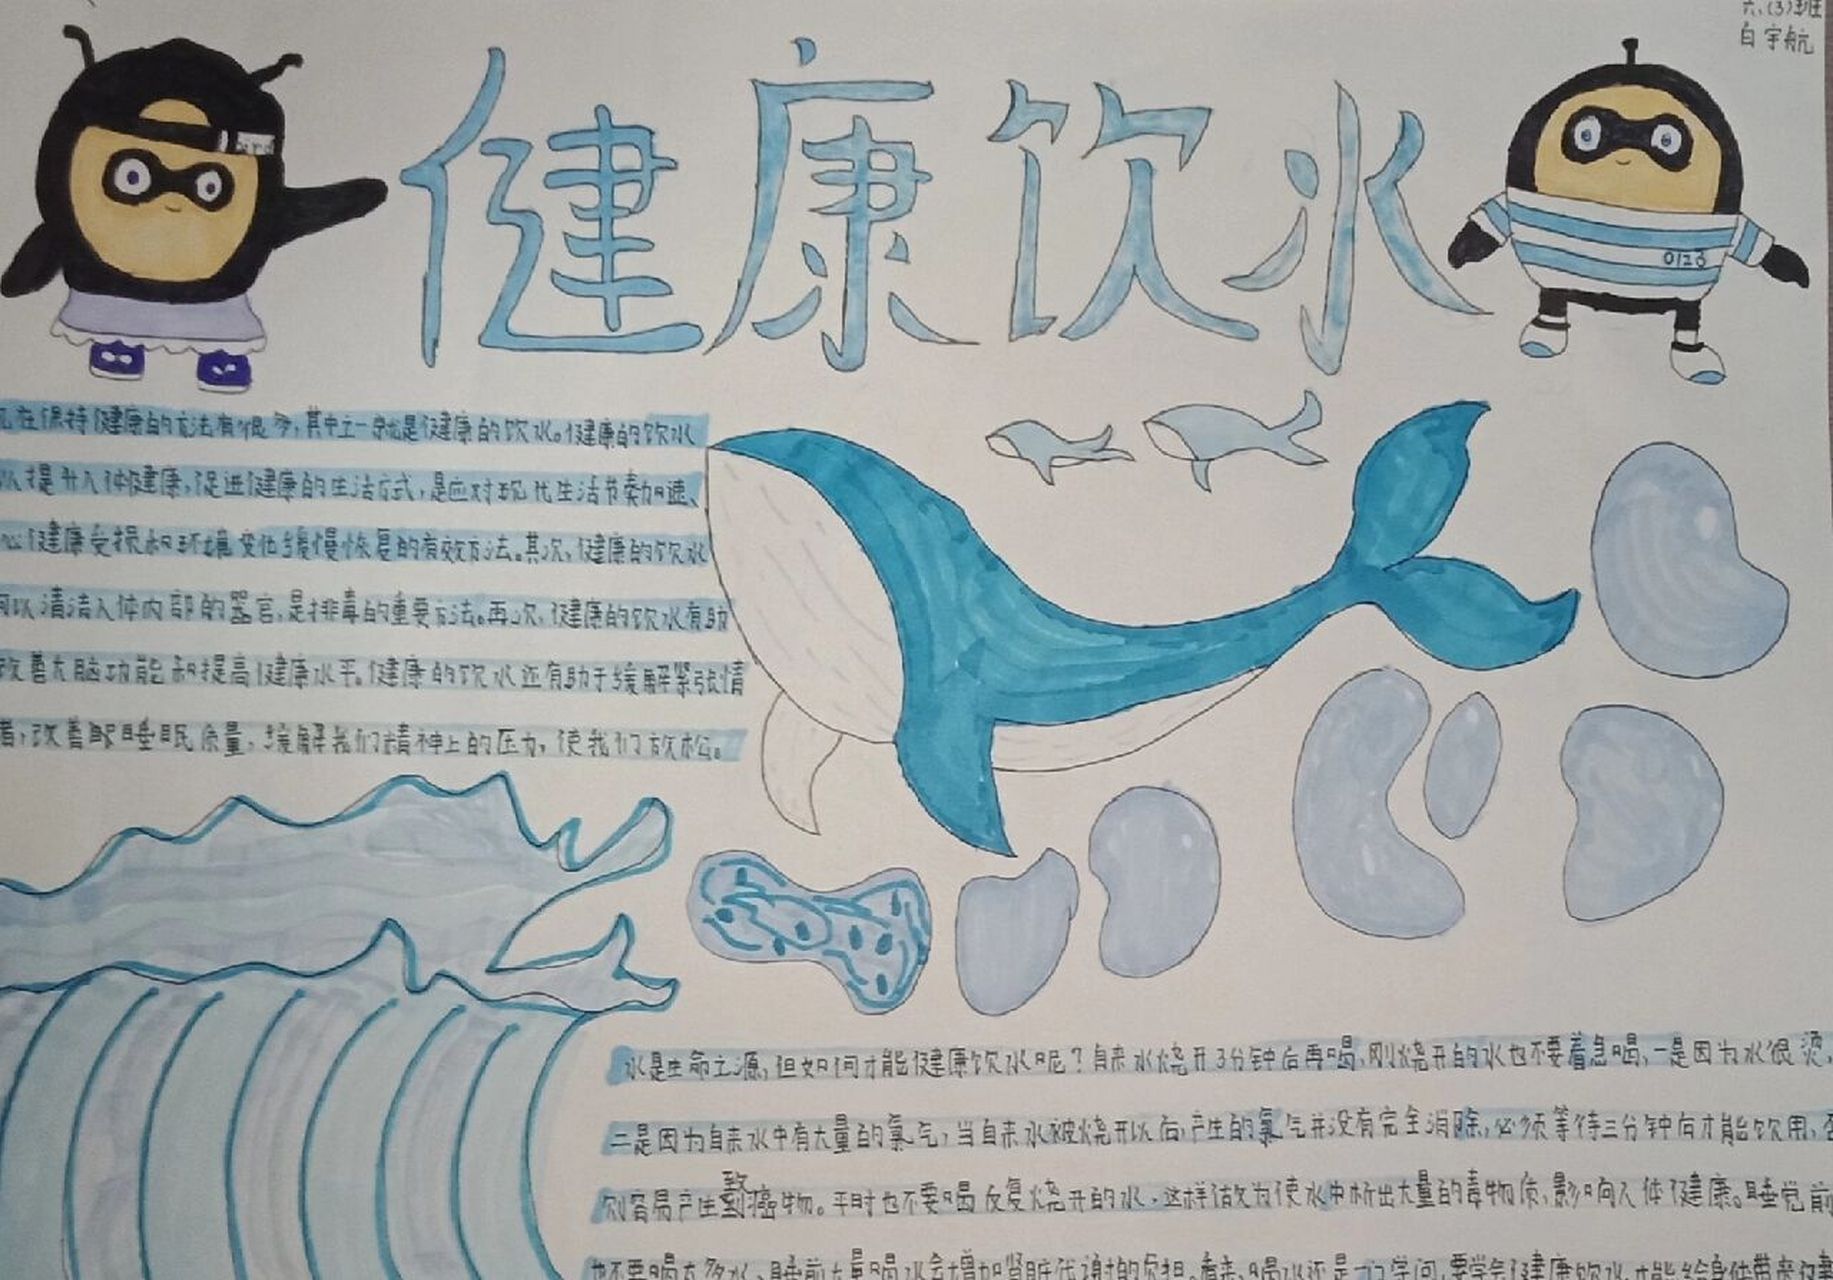 六.(3)班
白宇航
健康饮水
bird
0126
在保持健康的方法有很多,其中之一就是健康的饮水。健康的饮水
以提升人体健康,促进健康的生活方式,是应对现代生活节奏加速、
心健康受损和环境变化缓慢恢复的有效方法。其次,健康的饮水
可以清洁人体内部的器官,是排毒的重要方法。再次,健康的饮水有助
改善大脑功能和提高健康水平。健康的饮水还有助于缓解紧张情
者,改善睡眠质量,缓解我们精神上的压力,使我们放松。
水是生命之源,但如何才能健康饮水呢?自来水烧开3分钟后再喝,刚烧开的水也不要着急喝,一是因为水很烫,
二是因为自来水中有大量的氯气,当自来水被烧开以后,产生的氯气并没有完全消除,必须等待三分钟后才能饮用,否
则容易产生致癌物。平时也不要喝反复烧开的水,这样做为使水中析出大量的毒物质,影响人体健康。睡觉前
也不要喝太多水、睡前大量喝水会增加肾脏代谢的负担。看来,喝水还是一门学问,要学会健康饮水,才能给身体带来